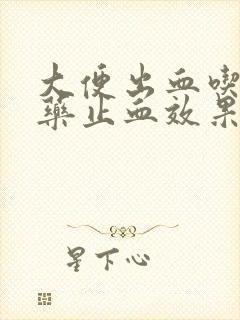 大便出血喫
藥止血效果
星下心